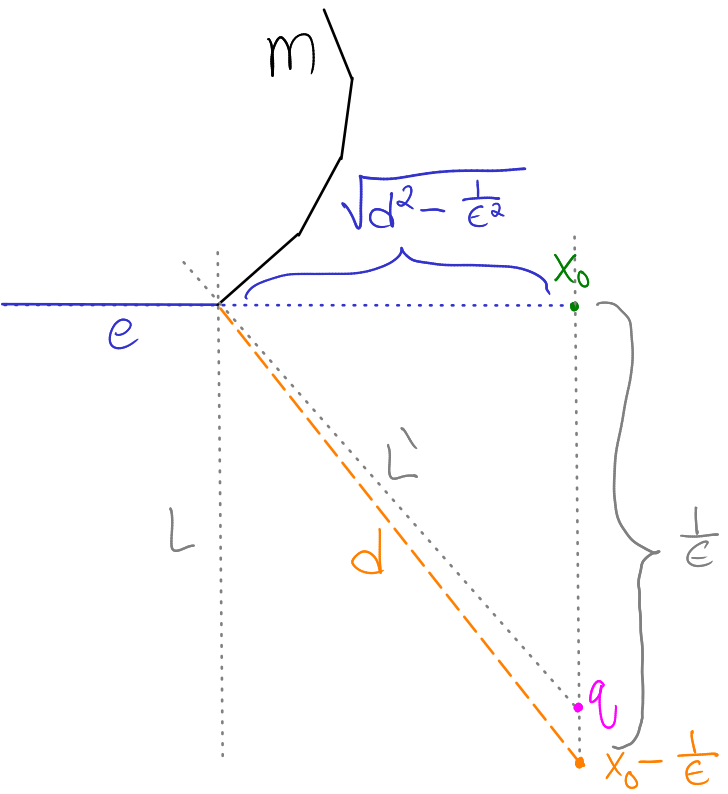 m
√(d² − 1/ϵ²)
x₀
e
L'
L
d
1/ϵ
q
x₀ − 1/ϵ